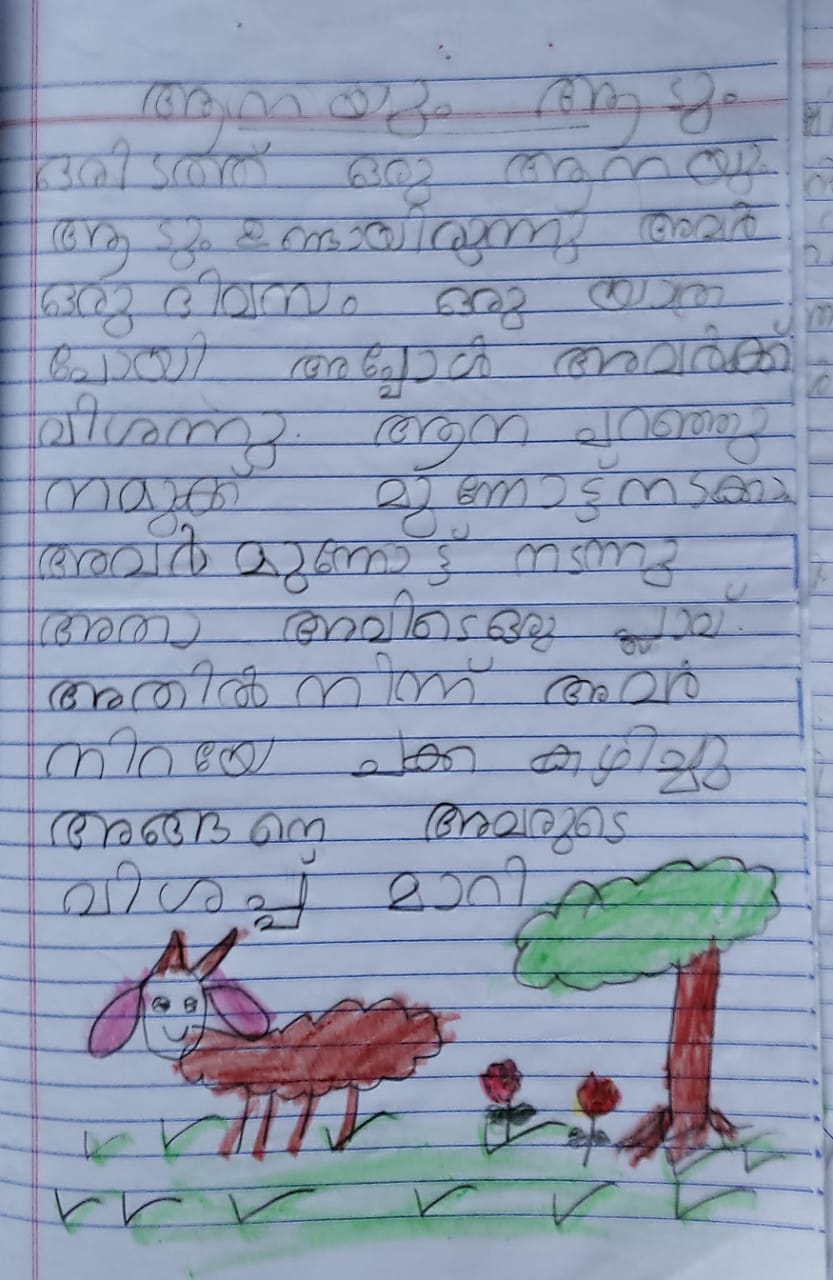 ആനയും ആടും
ഒരിടത്ത് ഒരു ആനയും
ആടും ഉണ്ടായിരുന്നു അവർ
ഒരു ദിവസം ഒരു യാത്ര
പോയി അപ്പോൾ അവർക്ക്
വിശന്നു. ആന പറഞ്ഞു
നമുക്ക് മുന്നോട്ട് നടക്കാം
അവർ മുന്നോട്ട് നടന്നു
അതാ അവിടെ ഒരു പ്ലാവ്.
അതിൽ നിന്ന് അവർ
നിറയേ ചക്ക കഴിച്ചു
അങ്ങനെ അവരുടെ
വിശപ്പ് മാറി